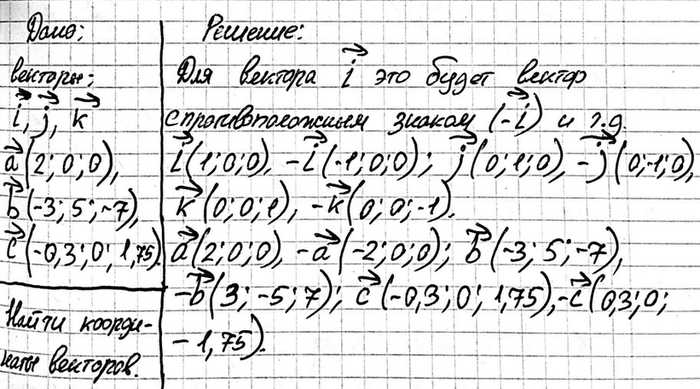 Дано:
векторы:
i, j, k
a(2; 0; 0),
b(-3; 5; -7),
c(-0,3; 0; 1,75).
Найти коорди-
наты векторов.
Решение:
Для вектора i это будет вектор
с противоположным знаком (-i) и т.д.
i(1; 0; 0), -i(-1; 0; 0); j(0; 1; 0), -j(0; -1; 0),
k(0; 0; 1), -k(0; 0; -1).
a(2; 0; 0), -a(-2; 0; 0); b(-3; 5; -7),
-b(3; -5; 7); c(-0,3; 0; 1,75), -c(0,3; 0;
-1,75).